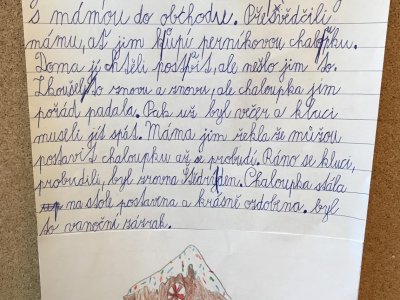 s mámou do obchodu. Přesvědčili
mámu, ať jim kupí perníkovou chaloupku.
Doma ji chtěli postavit, ale nešlo jim to.
Zkoušeli to znovu a znovu, ale chaloupka jim
pořád padala. Pak už byl večer a kluci
museli jít spát. Máma jim řekla že můžou
postavit chaloupku až se probudí. Ráno se kluci,
probudili, byl zrovna štědrý den. Chaloupka stála
na stole postavena a krásně ozdobna. byl
to vanoční zázrak.